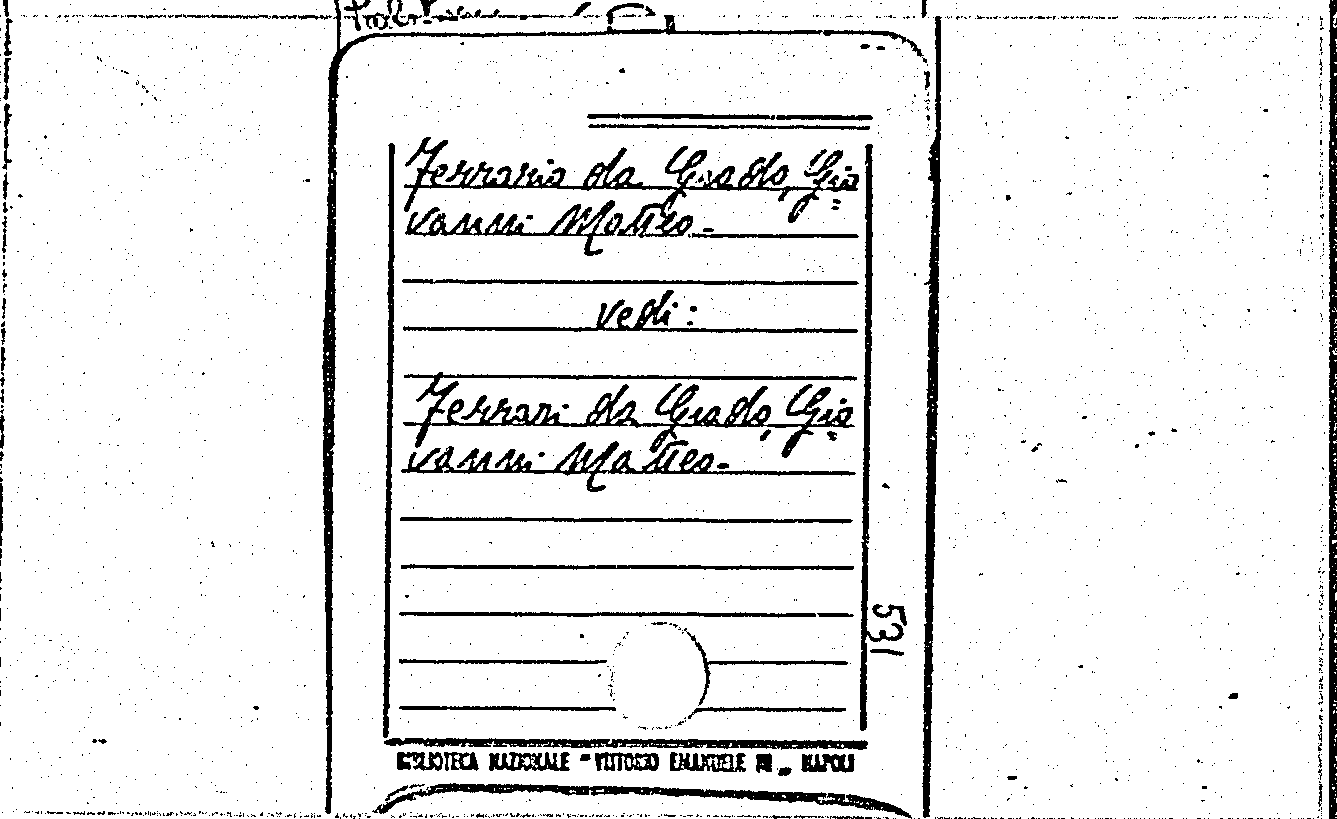 Ferraria da Grado, Gio=
vanni Matteo-
vedi:
Ferrari da Grado, Gio=
vanni Matteo-
531
BIBLIOTECA NAZIONALE "VITTORIO EMANUELE III„ NAPOLI